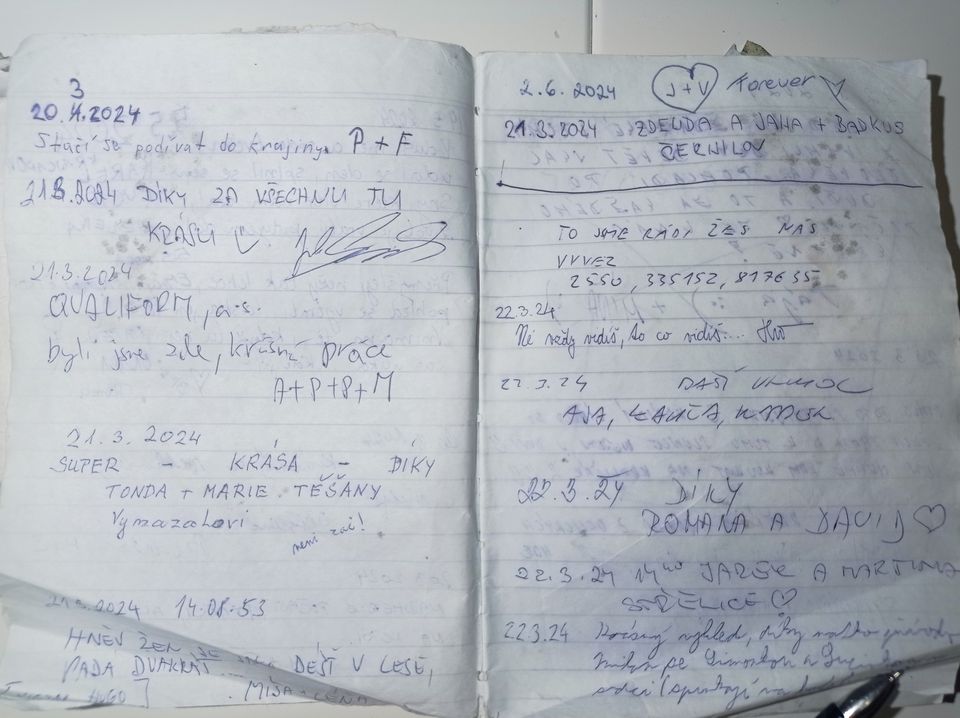 3
20.4.2024
Stačí se podívat do krajiny. P + F
21.3.2024 DÍKY ZA VŠECHNU TU
KRÁSU
21.3.2024
QUALIFORM, a.s.
byli jsme zde, krásná práce
A+P+P+M
21. 3. 2024
SUPER - KRÁSA - DÍKY
TONDA + MARIE. TĚŠANY
Vymazalovi
není zač!
21.3.2024 14:08:53
HNĚV ŽEN SE
PADÁ DVAKRÁT DEŠŤ V LESE,
HUGO ] MÍŠA
2.6.2024 J+V Forever
21.3.2024 ZDENDA A JANA + BADKUS
ČERNILOV
TO JSME RÁDI ŽEŠ NÁS
VYVEZ
2550, 335152, 817655
22.3.24
Ne vždy vidíš, to co vidíš....
22.3.24 DAŠÍ
AJA,
22.3.24 DÍKY
ROMANA A DAVID ♡
22.3.24 14⁴⁰ JAREK A MARTINA
STŘELICE ♡
22.3.24 Krásný výhled, díky matko přírodo